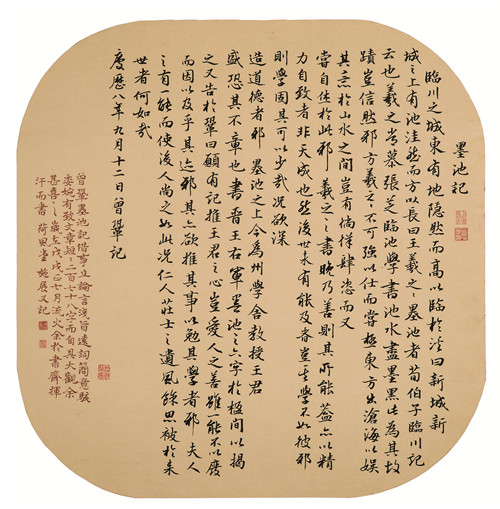 墨池記
臨川之城東有地隱然而高以臨於溪曰新城新
城之上有池洼然而方以長曰王羲之之墨池者荀伯子臨川記
云也羲之嘗慕張芝臨池學書池水盡墨黑此為其故
蹟豈信然邪方羲之之不可強以仕而嘗極東方出滄海以娛
其意於山水之間豈有徜徉肆恣而又
嘗自休於此邪 羲之之書晚乃善則其所能蓋亦以精
力自致者非天成也然後世未有能及者豈其學不如彼邪
則學固其可以少哉況欲深
造道德者邪 墨池之上今為州學舍教授王君
盛恐其不章也書晉王右軍墨池之六字於楹間以揭
之又告於鞏曰願有記推王君之心豈愛人之善雖一能不以廢
而因以及乎其迹邪其亦欲推其事以勉其學者邪 夫人
之有一能而使後人尚之如此況仁人莊士之遺風餘思被於來
世者何如哉
慶曆八年九月十二日曾鞏記
曾鞏墨池記借事立論言淺旨遠詞簡意駿
委婉有致文章短二百七十八字而自具大觀余
甚喜之歲在戊戌正七月流火余於書齋揮
汗而書 荷風堂 施展又記